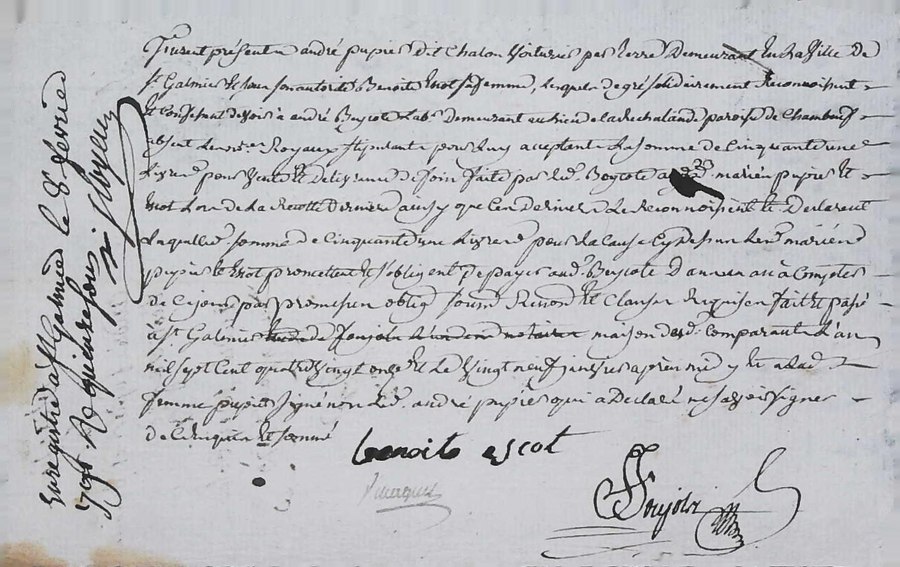 Furent présents andré pupier dit Chalon Voiturier par terre Demeurant En la Ville de
St Galmier Et sous son autorité Benoite Escot sa femme, Lesquels de gré solidairement Reconnoissent
Et Confessent devoir à andré Boycote Lab.r Demeurant au lieu de la Rechalande paroisse de Chambœuf
absent Le no.re Royaux stipulant pour luy acceptant La somme de Cinquante une
Livres pour Vente Et delivrance de foin faite par led. Boycote auxd. mariés pupier Et
Escot Lors de La Recolte derniere ainsy que Ces derniers Le reconnoissent Et Declarent
Laquelle somme de Cinquante une Livres pour la Cause Cy dessus Lesd. mariés
pupier Et Escot promettent Et s'obligent De payer aud. Boycote D'annuy en un an à Compter
de Ce jour par promission oblig. soum. Renon. Et Clauses Requises fait Et passé
à St Galmier maison desd. Comparants L'an
mil sept Cent quatre Vingt onze Et Le Vingt neuf janvier après midy Et a Lad.
femme pupier signé non Led. andré pupier qui a Déclaré ne savoir signer
de Ce Enquis Et sommé
benoite escot
Foujols
Enregistré a St Galmier le 8e fevrier
1791. R. quinze sous